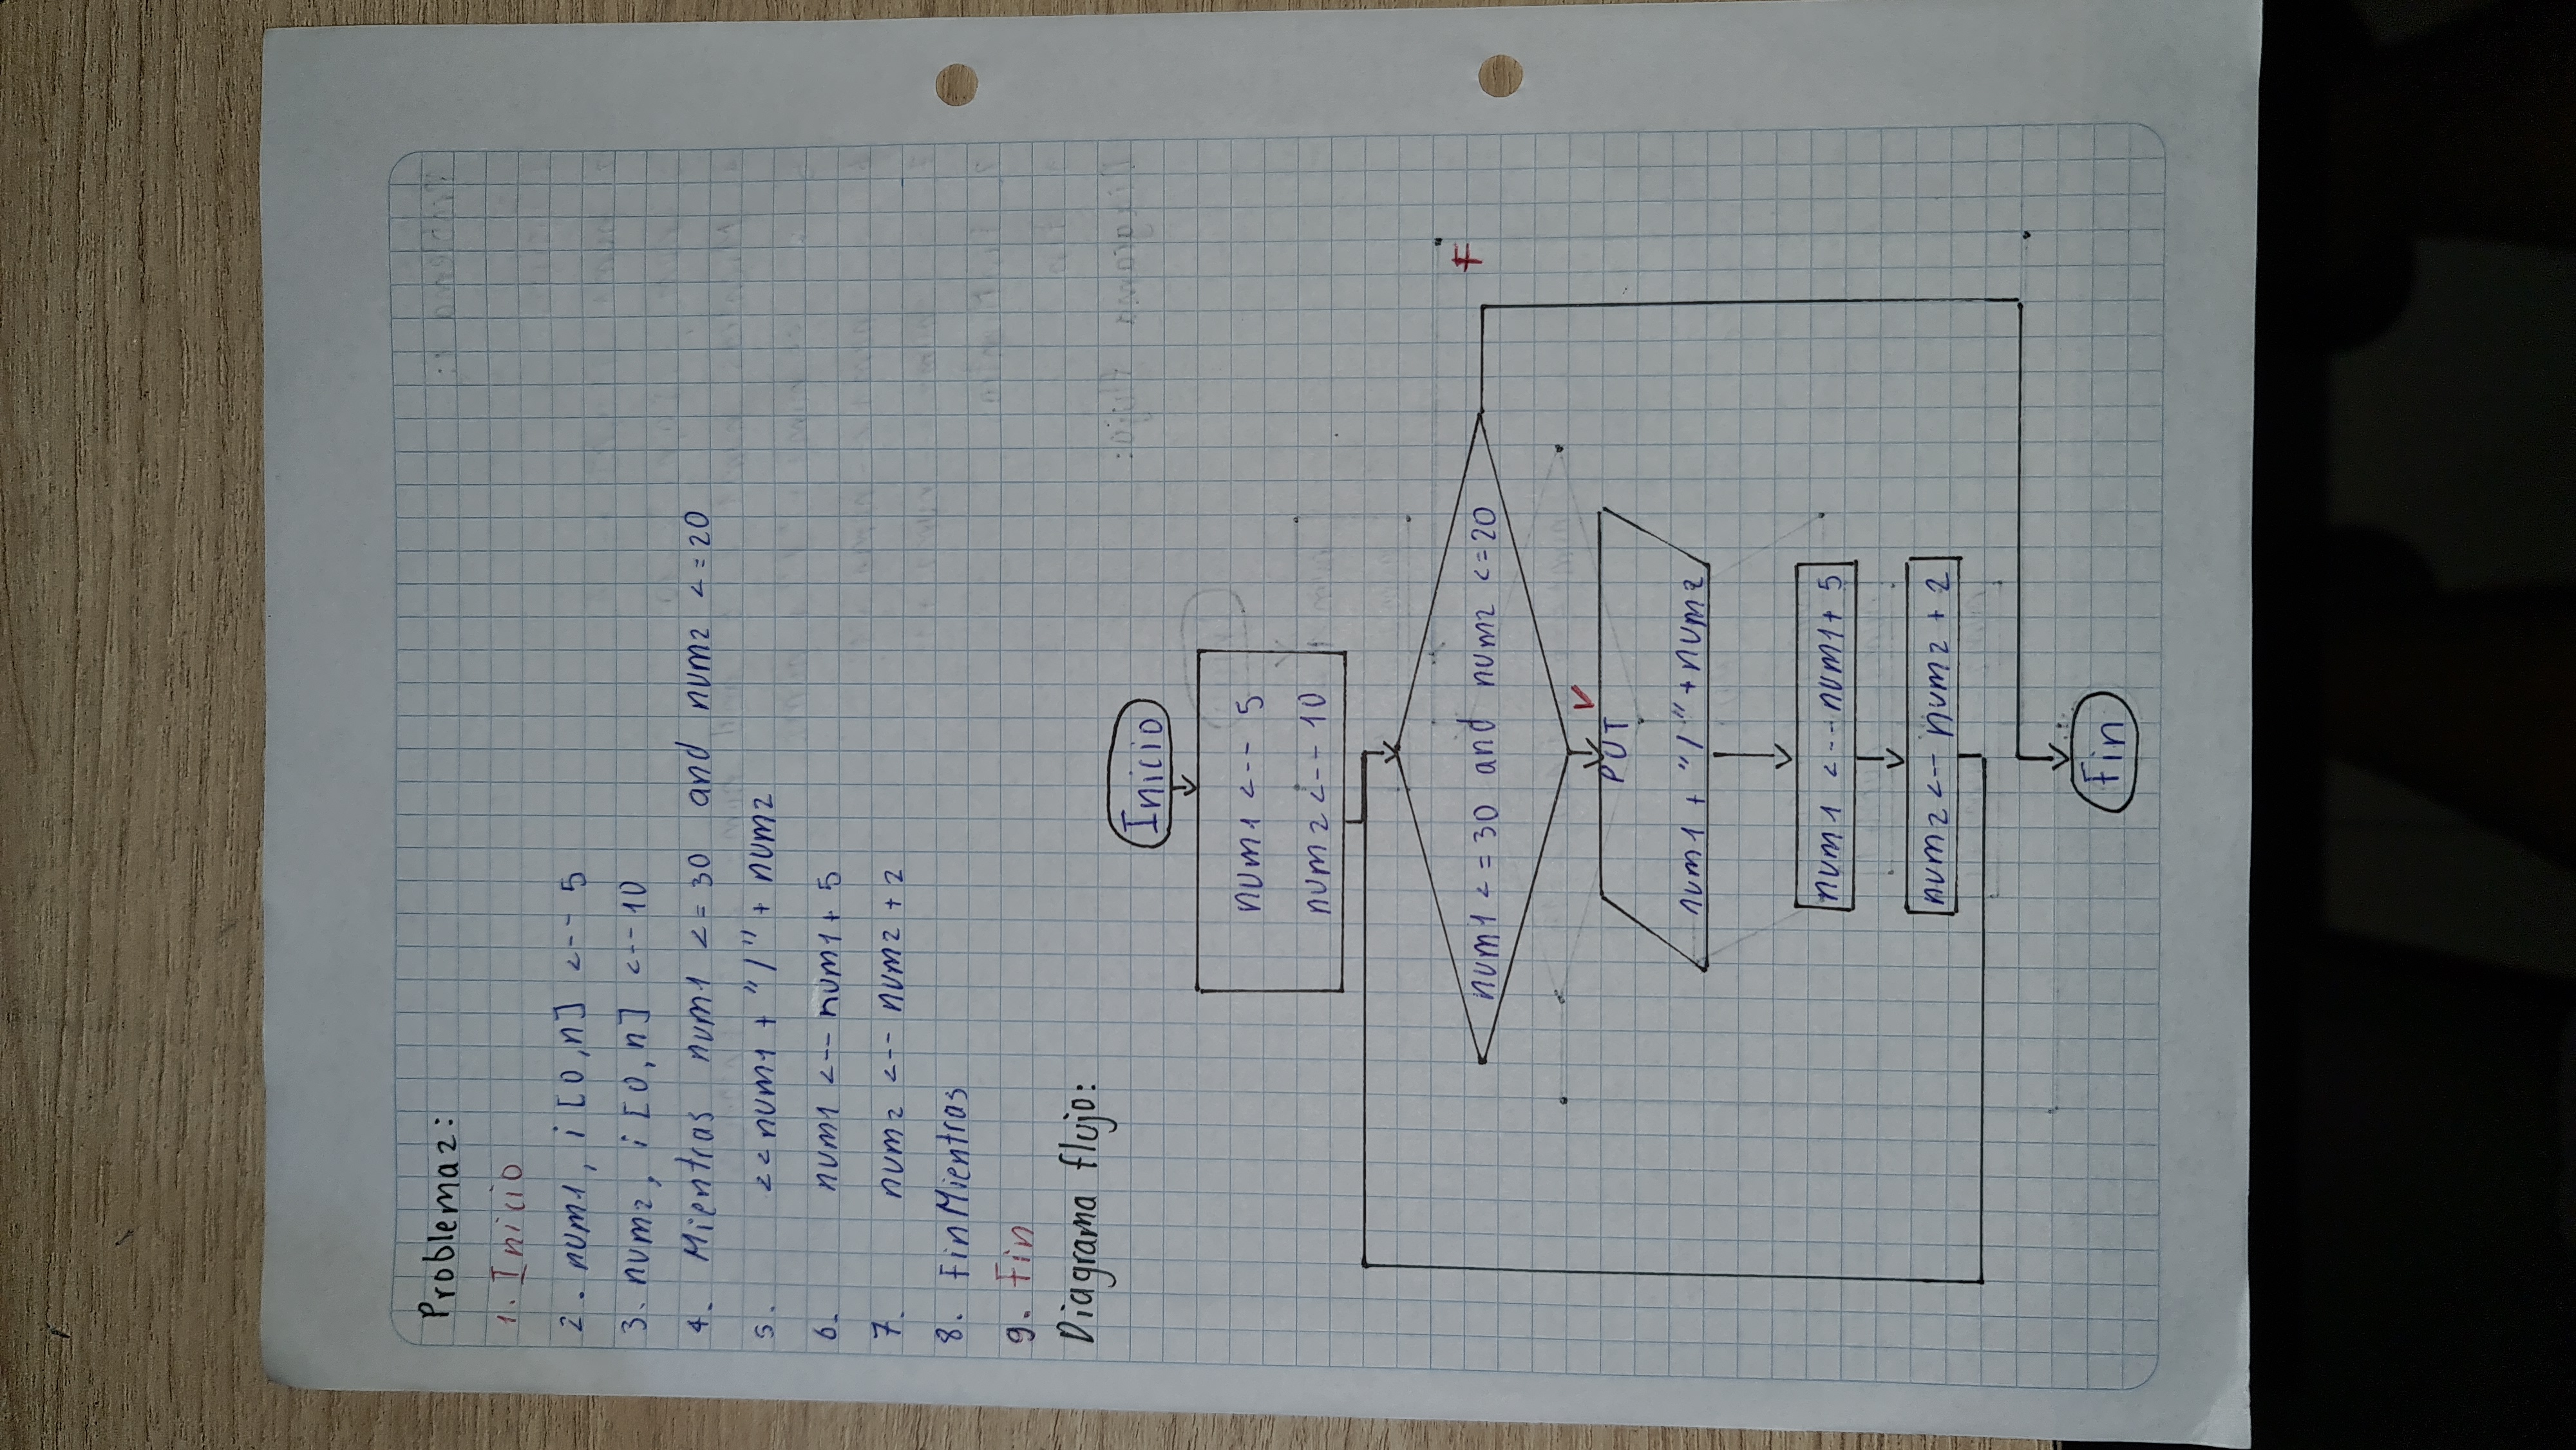 Problema 2:
1. Inicio
2. num1, i [0,n] <-- 5
3. num2, i [0,n] <-- 10
4. Mientras num1 <= 30 and num2 <= 20
5. << num1 + "/" + num2
6. num1 <-- num1 + 5
7. num2 <-- num2 + 2
8. FinMientras
9. Fin
Diagrama flujo:
Inicio
num1 <-- 5
num2 <-- 10
F
num1 <= 30 and num2 <= 20
V
PUT
num1 + "/" + num2
num1 <-- num1 + 5
num2 <-- num2 + 2
Fin